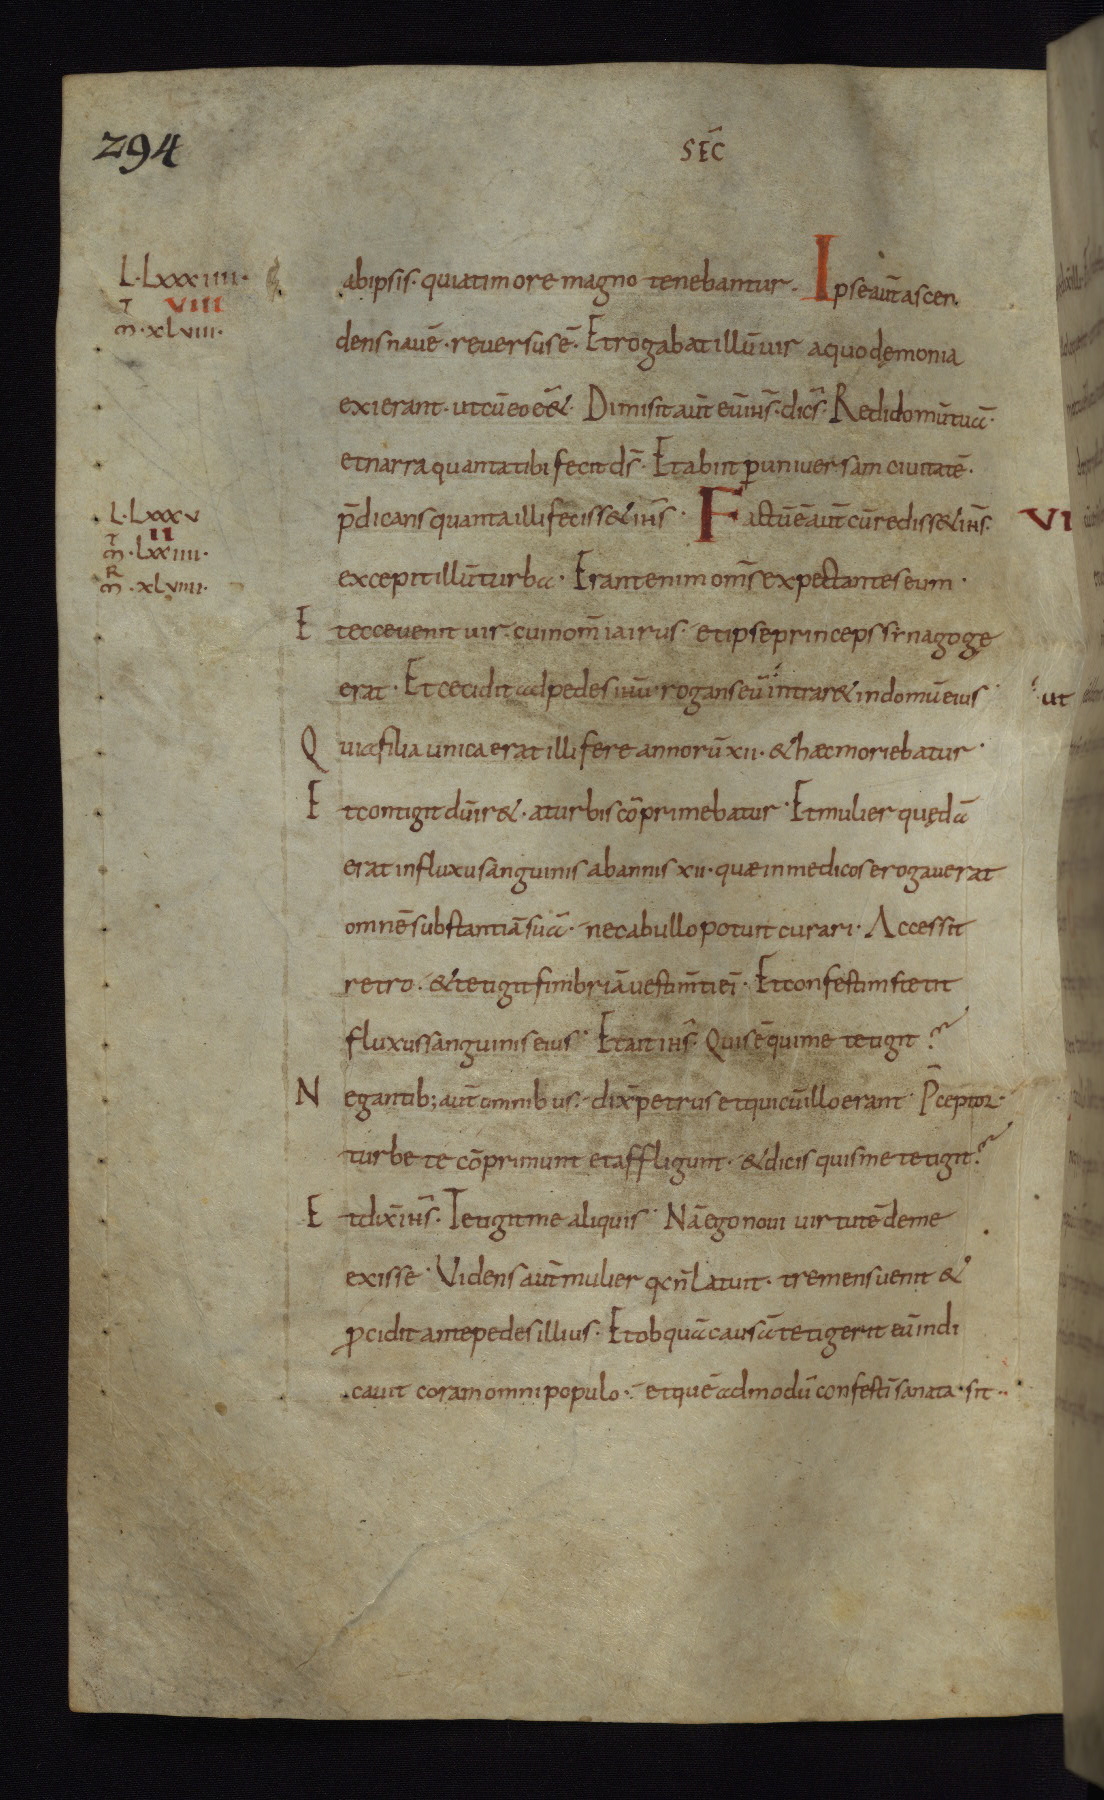 294
SEC̄
L·Lxxxiiii·
T VIII
m̄·xLviii·
ab ipsis· quia timore magno tenebantur· Ipse aut̄ ascen
dens navē· reversus ē· Et rogabat illū vir a quo dęmonia
exierant· ut cū eo eēt· Dimisit aut̄ eū ih̄s· dic̄s· Redi domū tuā·
et narra quanta tibi fecit d̄s· Et abiit p̱ universam civitatē·
L·Lxxxv
II
T
m̄·Lxxiiii·
R
m̄·xLviiii·
p̄dicans quanta illi fecisset ih̄s· Factū ē aut̄ cū redisset ih̄s· VI
excepit illū turba· Erant enim om̄s expectantes eum·
Et ecce venit vir· cui nom̄ iairus· et ipse princeps synagogę
erat· Et cecidit ad pedes ih̄u rogans eū intraret in domū eius ut
Quia filia unica erat illi fere annorū xii· & hæc moriebatur·
Et contigit dū iret· a turbis cōprimebatur· Et mulier quędā
erat in fluxu sanguinis ab annis xii· quæ in medicos erogaverat
omnē substantiā suā· nec ab ullo potuit curari· Accessit
retro· & tetigit fimbriā vestim̄ti eī· Et confestim stetit
fluxus sanguinis eius· Et ait ih̄s· Quis ē qui me tetigit?
Negantib; aut̄ omnibus· dix̄ petrus et qui cū illo erant· P̄ceptor·
turbe te cōprimunt et affligunt· & dicis quis me tetigit?
Et dix̄ ih̄s· Tetigit me aliquis· Nā ego novi virtutē de me
exisse· Videns aut̄ mulier q̇a n̄ latuit· tremens venit &
ꝓcidit ante pedes illius· Et ob quā causā tetigerit eū indi
cavit coram omni populo· et quē admodū confestī sanata sit··